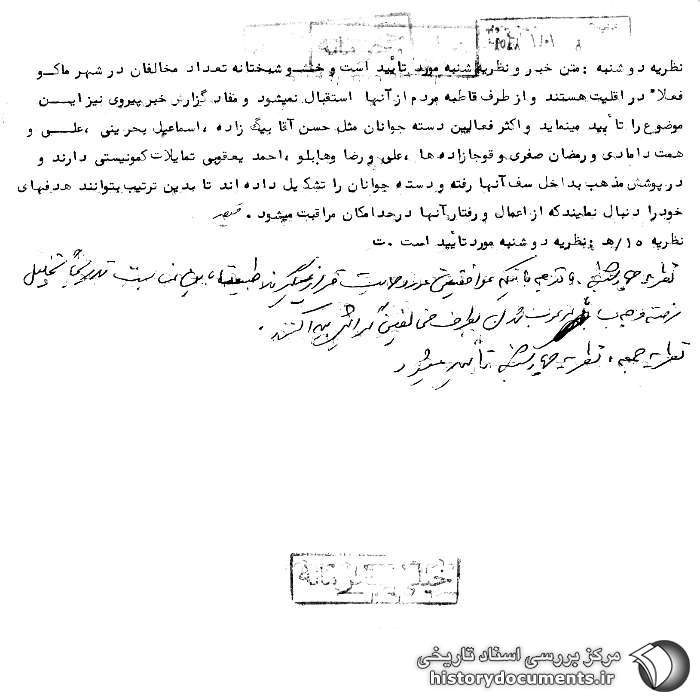 نظریه دوشنبه : متن خبر و نظریه شنبه مورد تایید است و خوشبختانه تعداد مخالفان در شهر ماکو
فعلا" در اقلیت هستند و از طرف قاطبه مردم از آنها استقبال نمیشود و مفاد گزارش خبر پیروی نیز این
موضوع را تأیید مینماید و اکثر فعالیین دسته جوانان مثل حسن آقا بیگ زاده ، اسماعیل بحرینی ، علی و
همت دامادی و رمضان صفری و قوجازاده ها ، علی و رضا وهابلو ، احمد یعقوبی تمایلات کمونیستی دارند و
در پوشش مذهب بداخل سف آنها رفته و دسته جوانان را تشکیل داده اند تا بدین ترتیب بتوانند هدفهای
خود را دنبال نمایند که از اعمال و رفتار آنها در حد امکان مراقبت میشود .
نظریه ۱۵/هـ : نظریه دوشنبه مورد تأیید است . ت
نظریه چهارشنبه . با توجه باینکه موافقین مورد حمایت قرار نمیگیرند طبیعتا تدریجا تحلیل
رفته و بطرف مخالفین گرایش پیدا کنند .
نظریه جمعه . نظریه چهارشنبه تأیید میشود
خیلی محرمانه
مرکز بررسی اسناد تاریخی
historydocuments.ir